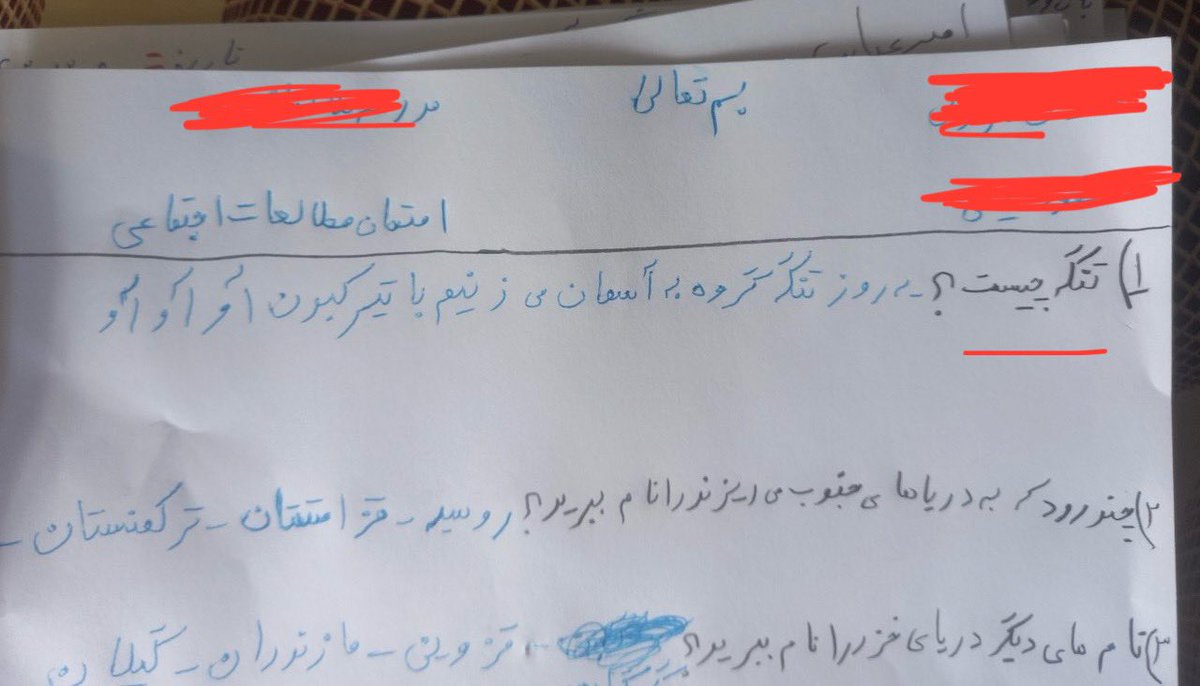 بسم تعالی
امتحان مطالعات اجتماعی
۱) تنگه چیست؟ یه روز تنگ گروه به آسمان می زنیم با تیر کبون اُو اُو اُو
۲) چند رود که به دریاها ی جنوب می ریزند را نام ببرید؟ روسیه - قزاقستان - ترکمنستان -
۳) نام های دیگر دریای خزر را نام ببرید؟ قزوین - مازندران - گیلان